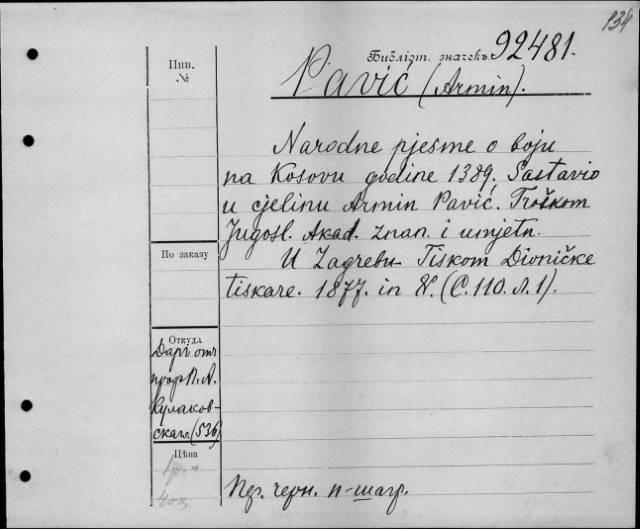 134
Библіот. значекъ 92481.
Pavić (Armin).
Инв.
№
Narodne pjesme o boju
na Kosovu godine 1389. Sastavio
u cjelinu Armin Pavić. Troškom
Jugosl. Akad. znan. i umjetn.
U Zagrebu. Tiskom Dioničke
tiskare. 1877. in 8°. (C. 110. л. 1).
По заказу
Откуда
Даръ отъ
проф. П. А.
Кулаков-
скаго. (536)
Цѣна
Пер. черн. п-шагр.